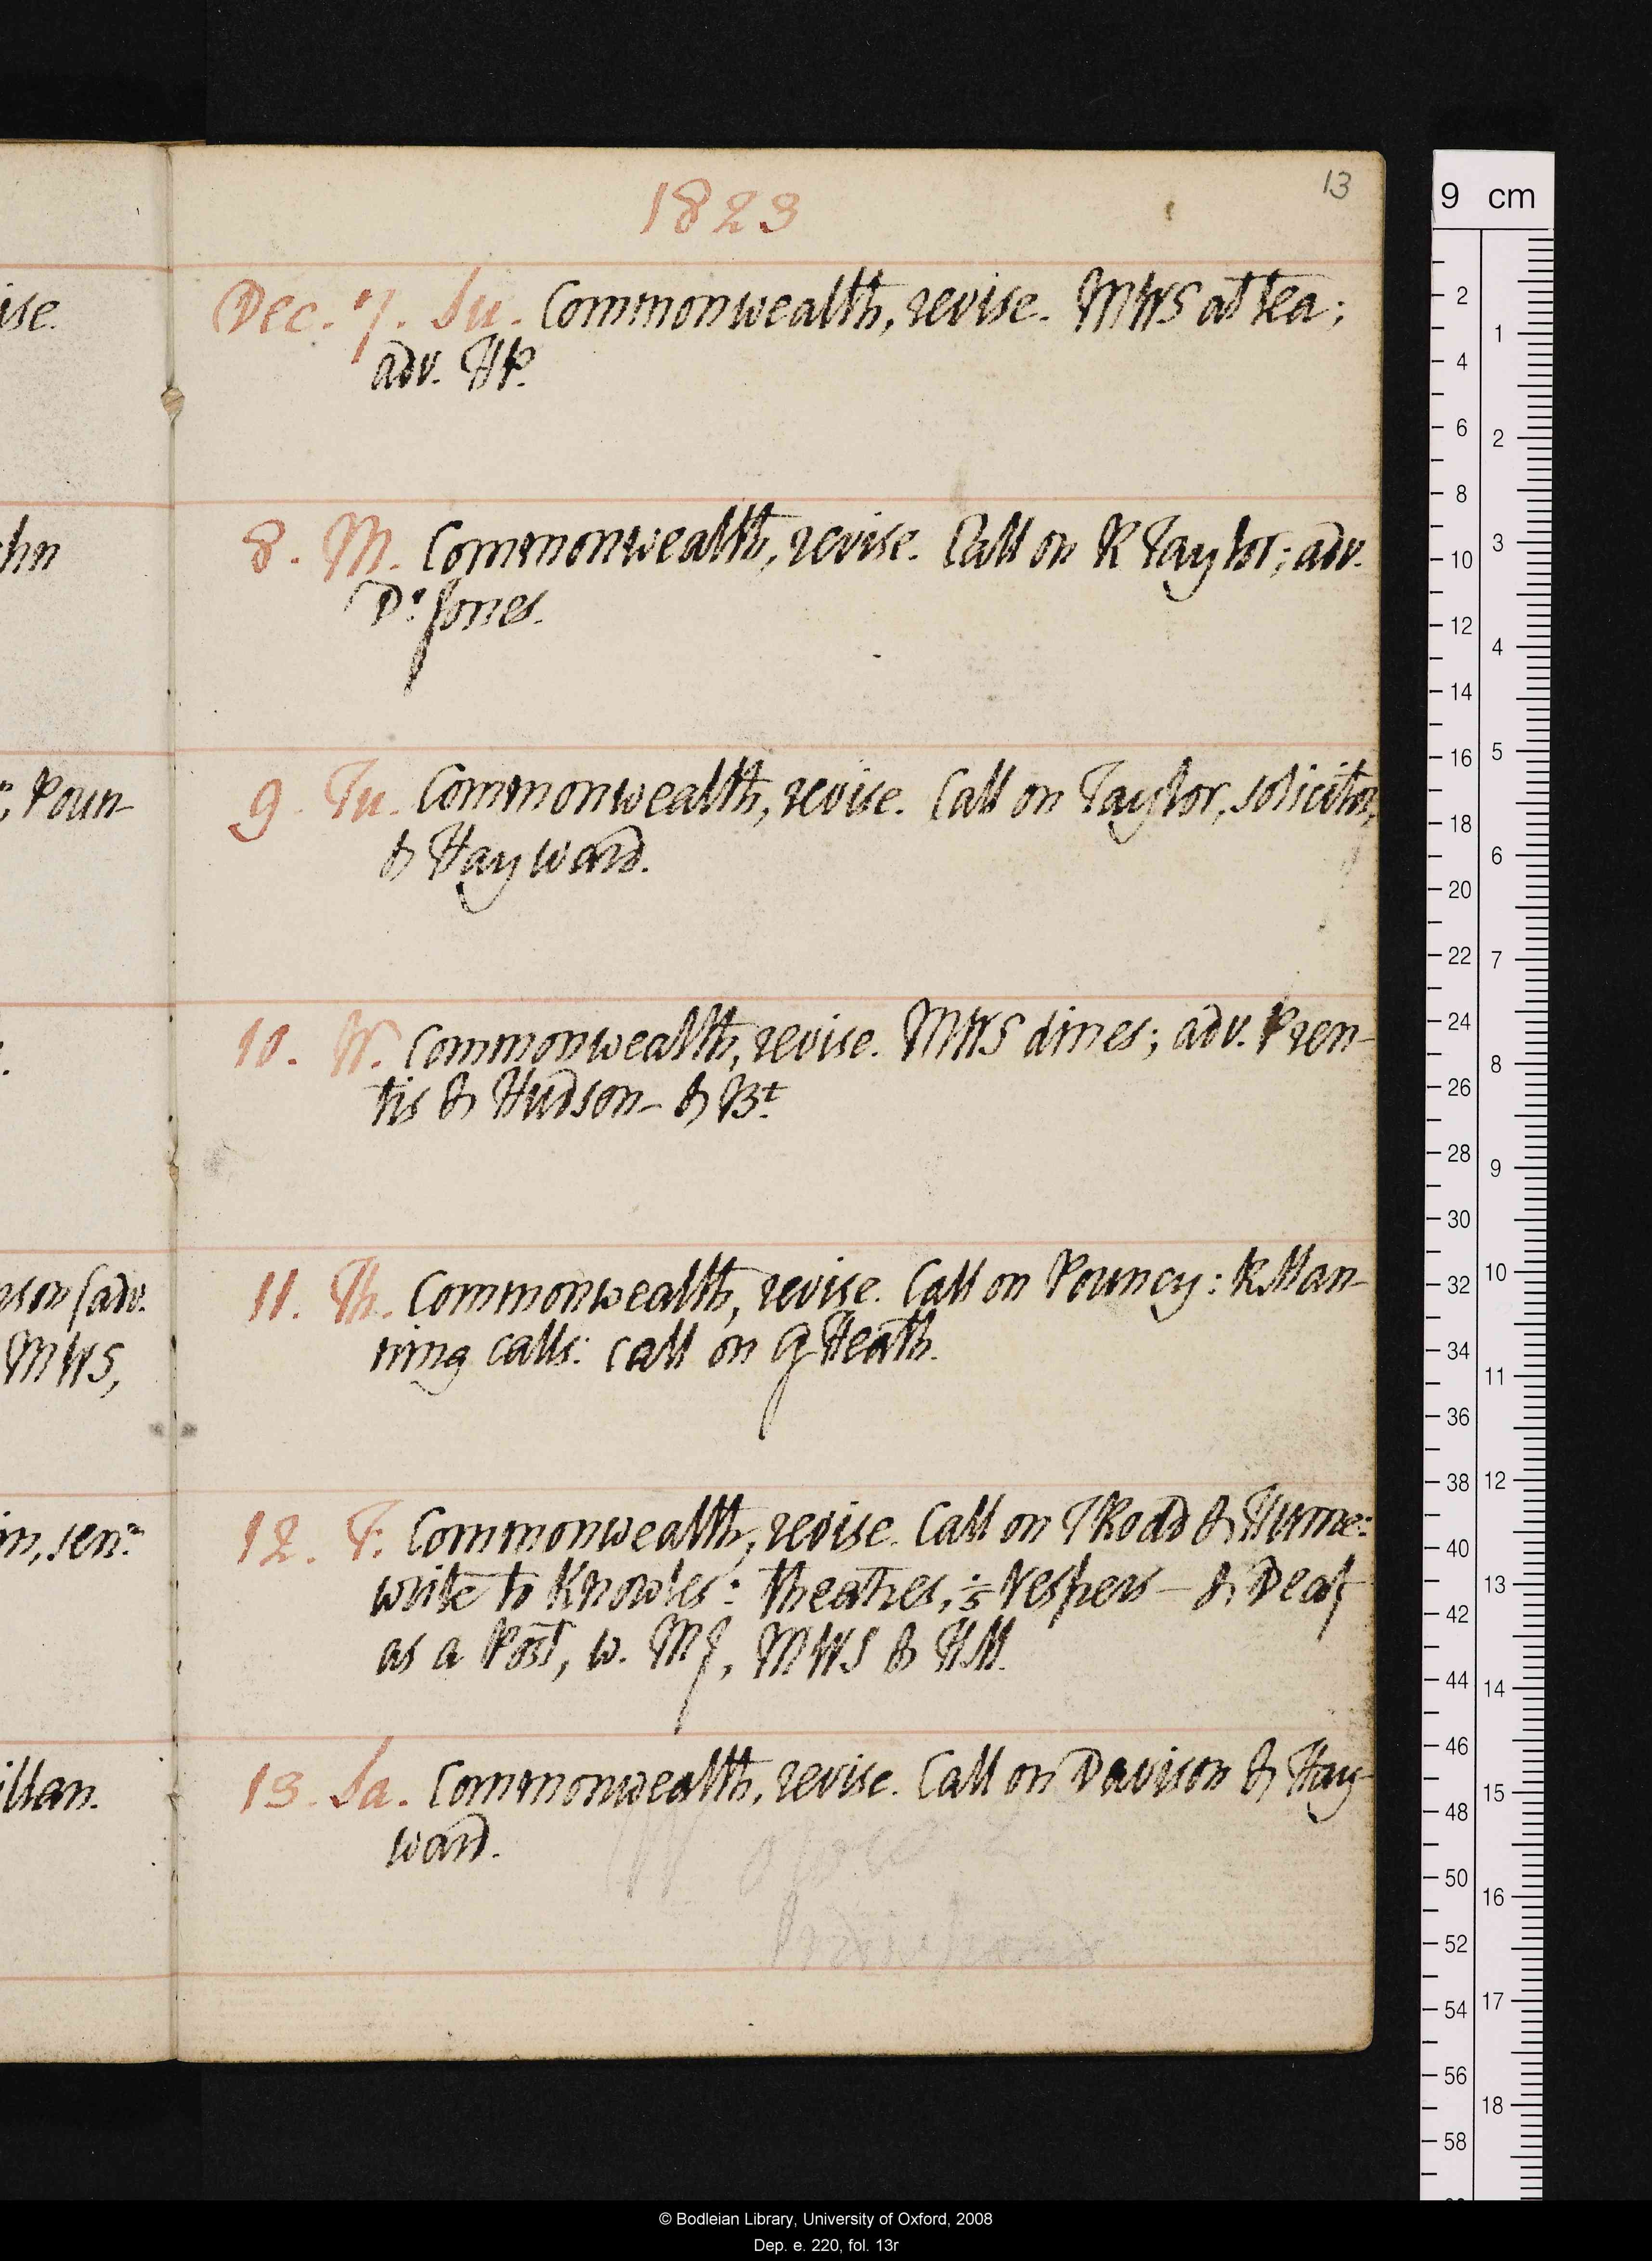 13
1823
ise.
Dec. 7. Su. Commonwealth, revise. MWS at tea;
adv. HP.
hn
8. M. Commonwealth, revise. Call on R Taylor; adv.
Dr Jones.
; Poun-
9. Tu. Commonwealth, revise. Call on Taylor, solicitor,
& Hayward.
10. W. Commonwealth, revise. MWS dines; adv. Pren-
tis & Hudson – & Bt
nson (adv.
MWS,
11. Th. Commonwealth, revise. Call on Pouncy: R Man-
ning calls: call on G Heath.
in, senr
12. F. Commonwealth, revise. Call on T Rodd & Hurne:
write to Knowles: theatres, Vespers – & Deaf
as a Post, w. MJ, MWS & HM.
illan.
13. Sa. Commonwealth, revise. Call on Davison & Hay-
ward.
9 cm
2 4 6 8 10 12 14 16 18 20 22 24 26 28 30 32 34 36 38 40 42 44 46 48 50 52 54 56 58
1 2 3 4 5 6 7 8 9 10 11 12 13 14 15 16 17 18
© Bodleian Library, University of Oxford, 2008
Dep. e. 220, fol. 13r